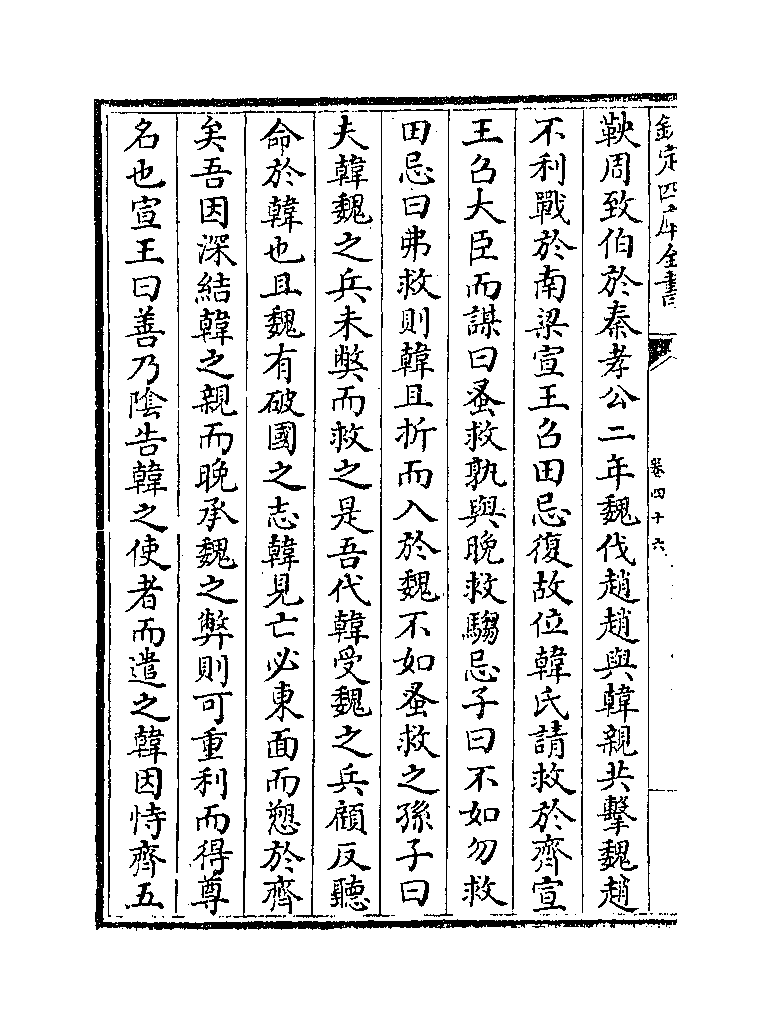 欽定四庫全書
卷四十六
鞅周致伯於秦孝公二年魏伐趙趙與韓親共擊魏趙
不利戰於南梁宣王召田忌復故位韓氏請救於齊宣
王召大臣而謀曰蚤救孰與晚救騶忌子曰不如勿救
田忌曰弗救則韓且折而入於魏不如蚤救之孫子曰
夫韓魏之兵未弊而救之是吾代韓受魏之兵顧反聽
命於韓也且魏有破國之志韓見亡必東面而愬於齊
矣吾因深結韓之親而晚承魏之弊則可重利而得尊
名也宣王曰善乃陰告韓之使者而遣之韓因恃齊五